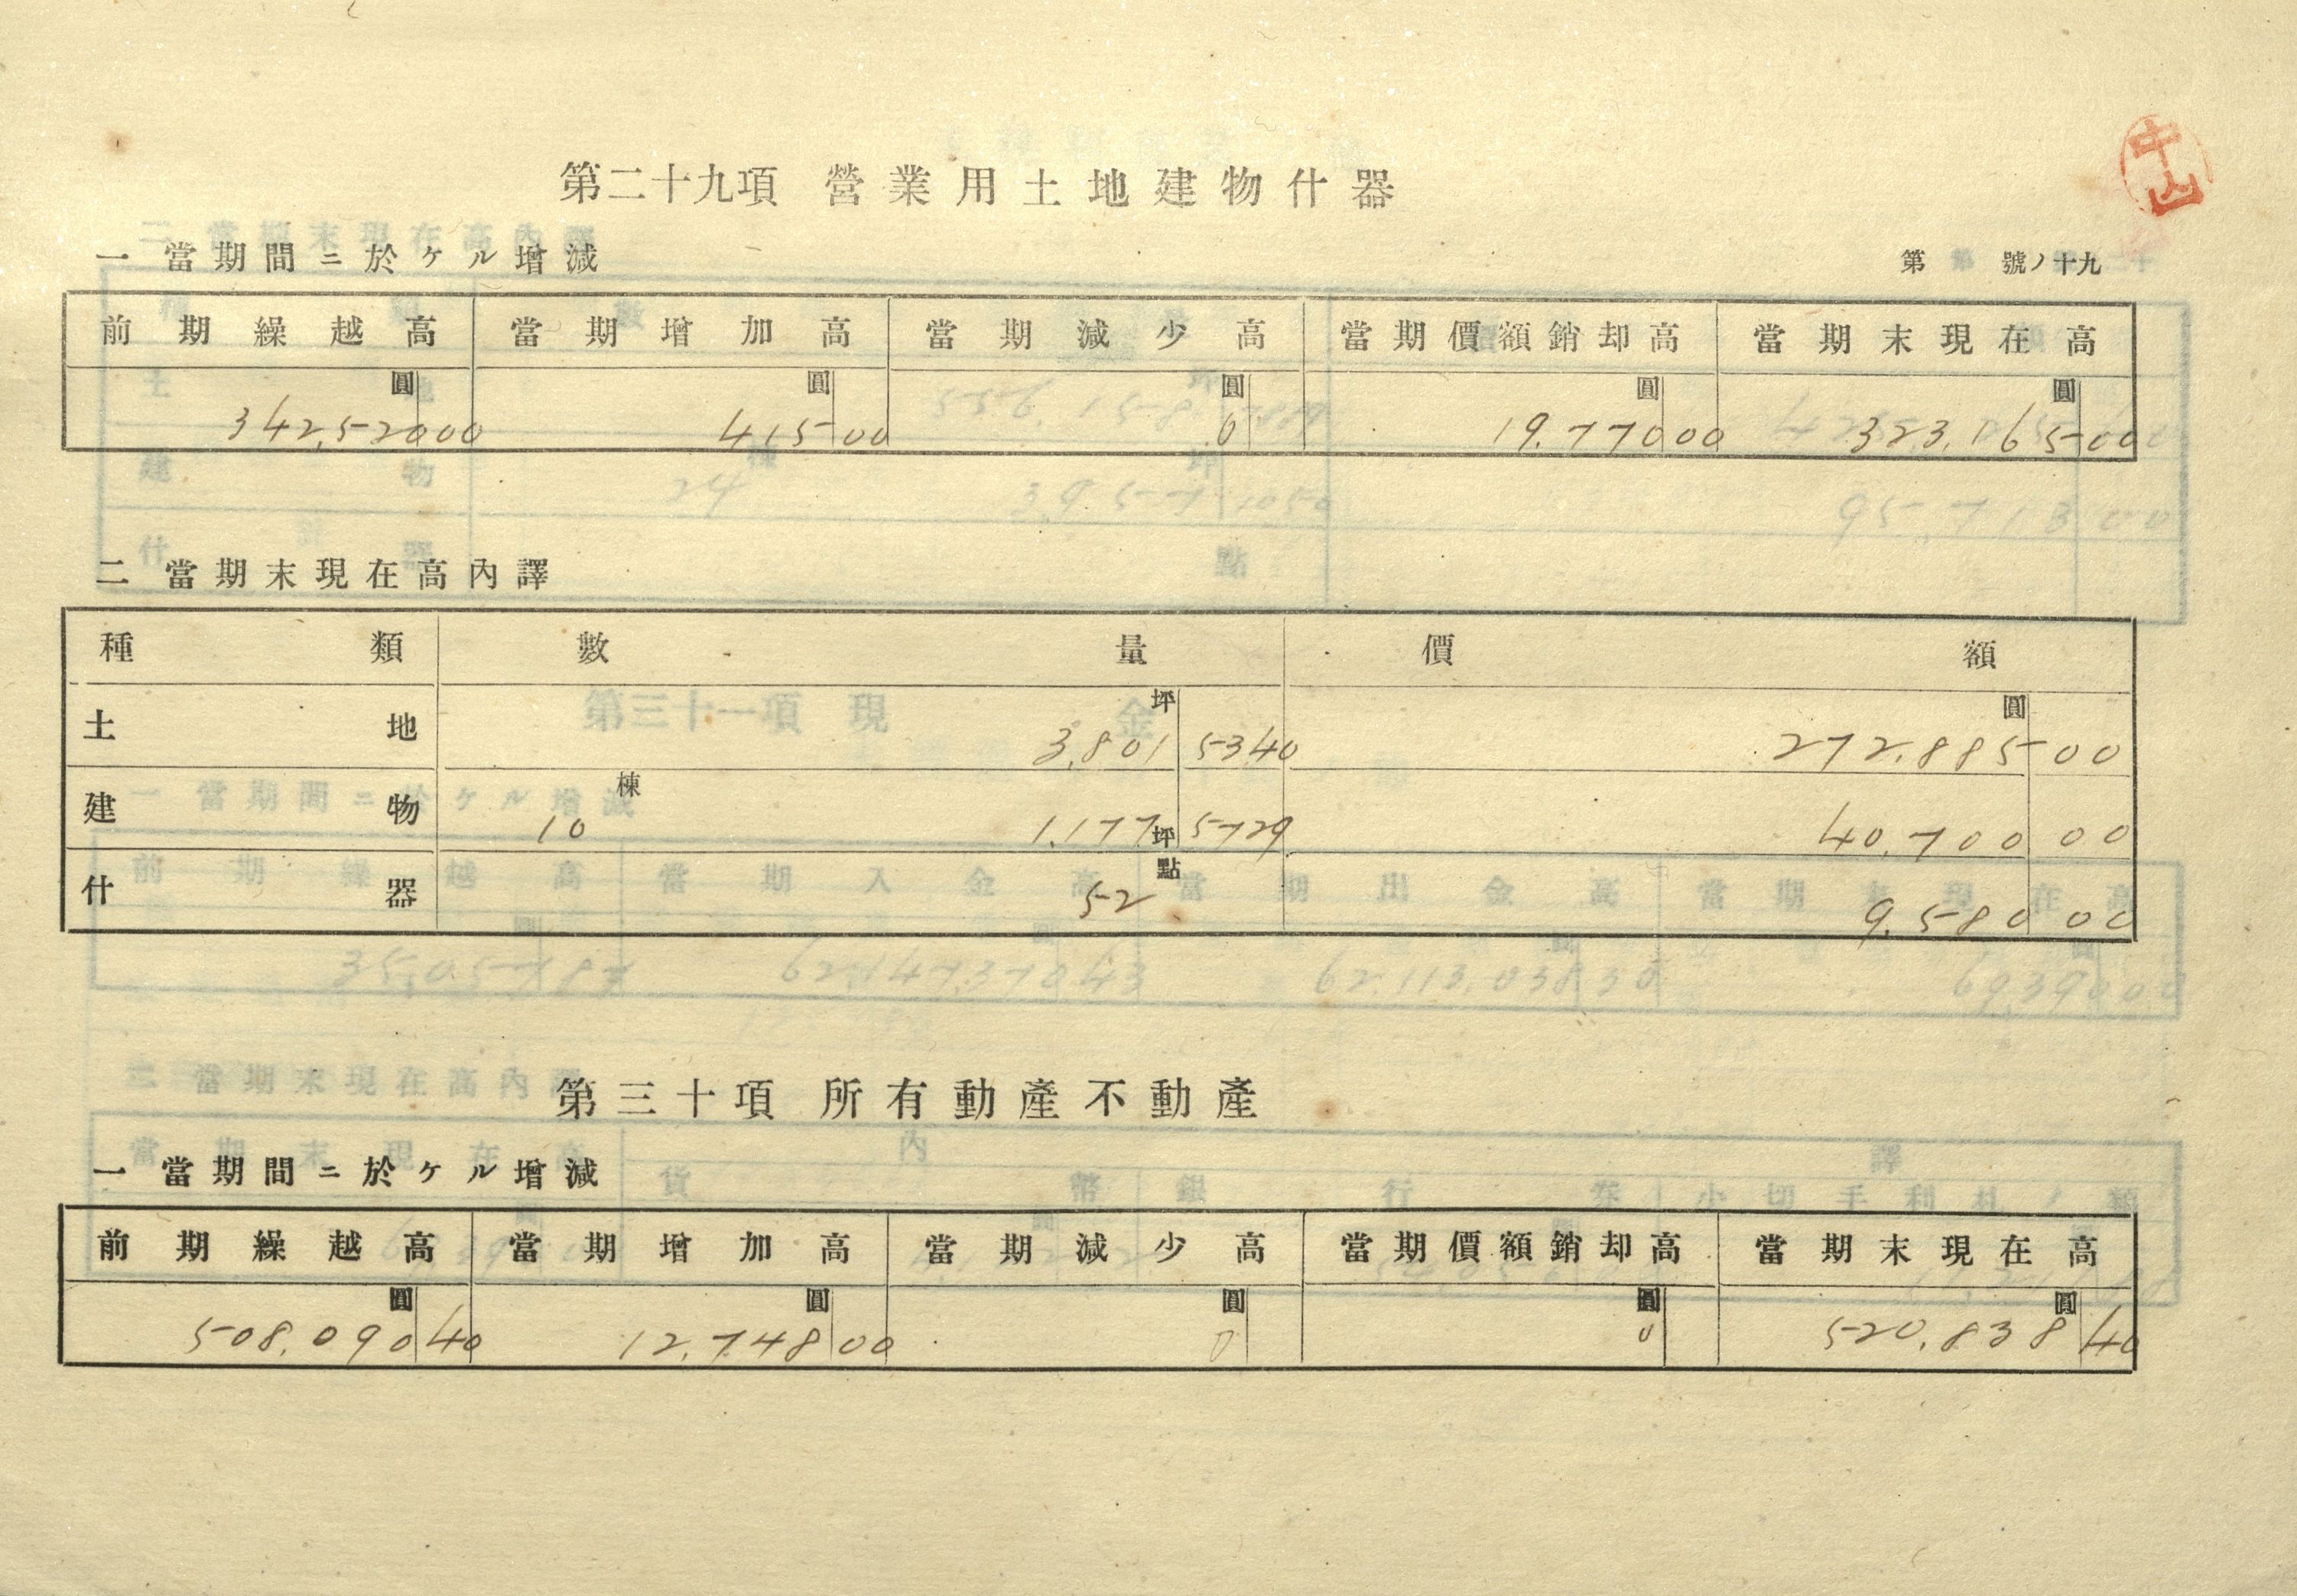 中山
第二十九項 營業用土地建物什器
一 當期間ニ於ケル增減
第 號ノ十九
前期繰越高 當期增加高 當期減少高 當期價額銷却高 當期末現在高
圓 圓 圓 圓 圓
342,520 00 415 00 0 19,770 00 323,165 00
二 當期末現在高內譯
種類 數量 價額
土地 3,801坪 5340 272,885圓 00
建物 10棟 1,177坪 5729 40,700 00
什器 52點 9,580 00
第三十項 所有動產不動產
一 當期間ニ於ケル增減
前期繰越高 當期增加高 當期減少高 當期價額銷却高 當期末現在高
圓 圓 圓 圓 圓
508,090 40 12,748 00 0 0 520,838 40